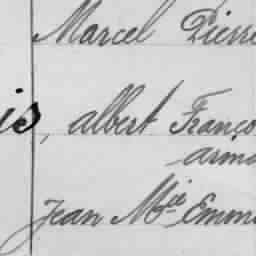 Marcel Pierre
is, albert Franço
arma
Jean Mie Emma